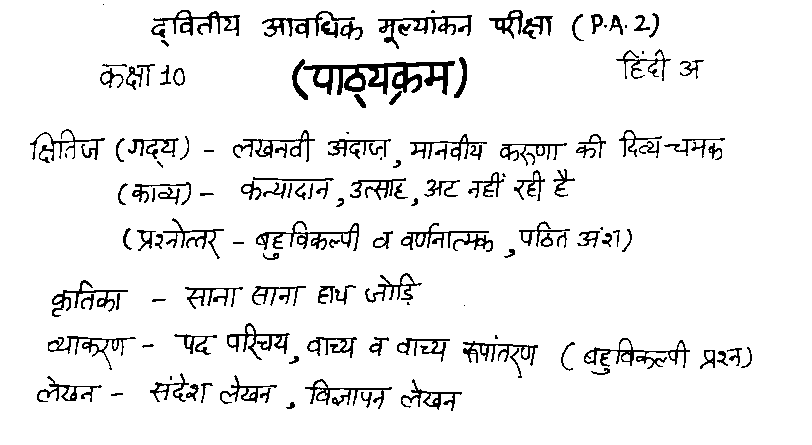 द्वितीय आवधिक मूल्यांकन परीक्षा (P.A.2)
कक्षा 10 (पाठ्यक्रम) हिंदी अ
क्षितिज (गद्य) - लखनवी अंदाज़, मानवीय करूणा की दिव्य-चमक
(काव्य) - कन्यादान, उत्साह, अट नहीं रही है
(प्रश्नोत्तर - बहुविकल्पी व वर्णनात्मक, पठित अंश)
कृतिका - साना साना हाथ जोड़ि
व्याकरण - पद परिचय, वाच्य व वाच्य रूपांतरण (बहुविकल्पी प्रश्न)
लेखन - संदेश लेखन, विज्ञापन लेखन